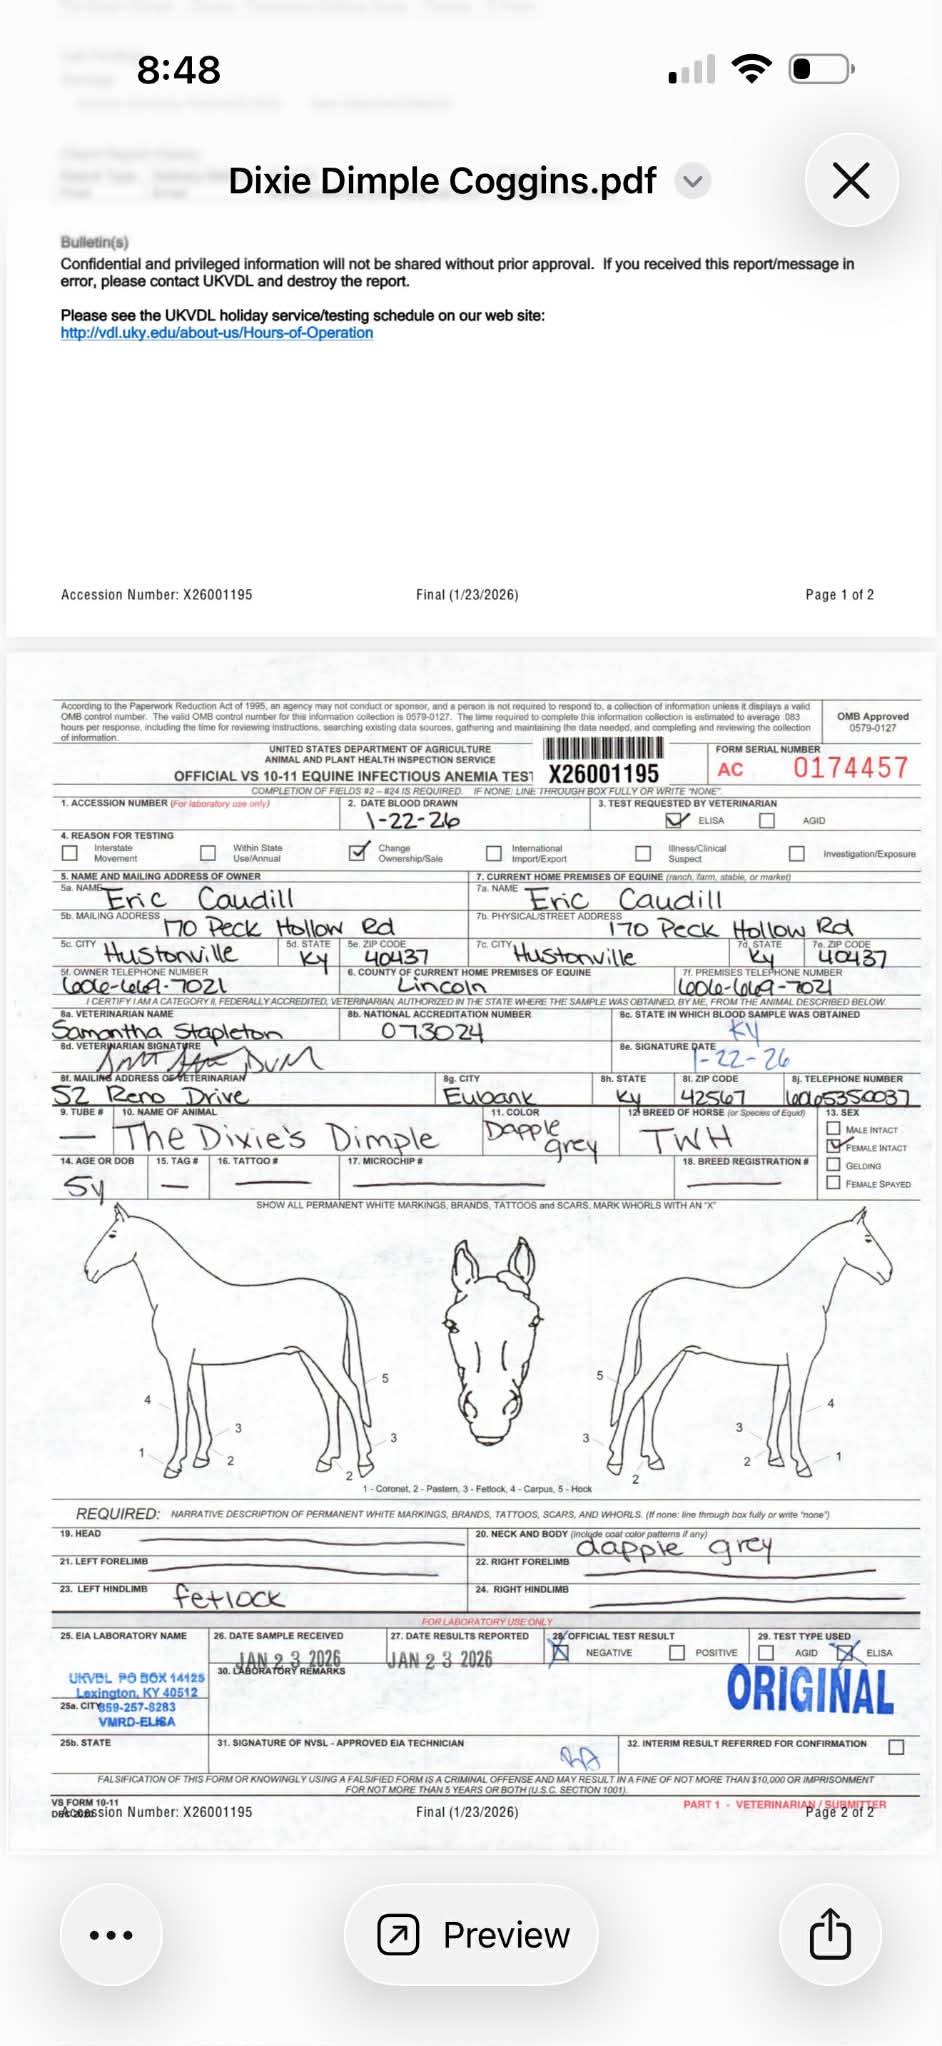 8:48
Dixie Dimple Coggins.pdf
Bulletin(s)
Confidential and privileged information will not be shared without prior approval. If you received this report/message in
error, please contact UKVDL and destroy the report.
Please see the UKVDL holiday service/testing schedule on our web site:
http://vdl.uky.edu/about-us/Hours-of-Operation
Accession Number: X26001195 Final (1/23/2026) Page 1 of 2
According to the Paperwork Reduction Act of 1995, an agency may not conduct or sponsor, and a person is not required to respond to, a collection of information unless it displays a valid
OMB control number. The valid OMB control number for this information collection is 0579-0127. The time required to complete this information collection is estimated to average .083
hours per response, including the time for reviewing instructions, searching existing data sources, gathering and maintaining the data needed, and completing and reviewing the collection
of information.
OMB Approved
0579-0127
UNITED STATES DEPARTMENT OF AGRICULTURE
ANIMAL AND PLANT HEALTH INSPECTION SERVICE
OFFICIAL VS 10-11 EQUINE INFECTIOUS ANEMIA TEST
X26001195
FORM SERIAL NUMBER
AC 0174457
COMPLETION OF FIELDS #2 – #24 IS REQUIRED. IF NONE: LINE THROUGH BOX FULLY OR WRITE "NONE".
1. ACCESSION NUMBER (For laboratory use only)
2. DATE BLOOD DRAWN
1-22-26
3. TEST REQUESTED BY VETERINARIAN
ELISA AGID
4. REASON FOR TESTING
Interstate Movement
Within State Use/Annual
Change Ownership/Sale
International Import/Export
Illness/Clinical Suspect
Investigation/Exposure
5. NAME AND MAILING ADDRESS OF OWNER
7. CURRENT HOME PREMISES OF EQUINE (ranch, farm, stable, or market)
5a. NAME Eric Caudill
7a. NAME Eric Caudill
5b. MAILING ADDRESS 170 Peck Hollow Rd
7b. PHYSICAL/STREET ADDRESS 170 Peck Hollow Rd
5c. CITY Hustonville
5d. STATE Ky
5e. ZIP CODE 40437
7c. CITY Hustonville
7d. STATE Ky
7e. ZIP CODE 40437
5f. OWNER TELEPHONE NUMBER
606-669-7021
6. COUNTY OF CURRENT HOME PREMISES OF EQUINE
Lincoln
7f. PREMISES TELEPHONE NUMBER
606-669-7021
I CERTIFY I AM A CATEGORY II, FEDERALLY ACCREDITED, VETERINARIAN, AUTHORIZED IN THE STATE WHERE THE SAMPLE WAS OBTAINED, BY ME, FROM THE ANIMAL DESCRIBED BELOW.
8a. VETERINARIAN NAME
Samantha Stapleton
8b. NATIONAL ACCREDITATION NUMBER
073024
8c. STATE IN WHICH BLOOD SAMPLE WAS OBTAINED
KY
8d. VETERINARIAN SIGNATURE
DVM
8e. SIGNATURE DATE
1-22-26
8f. MAILING ADDRESS OF VETERINARIAN
52 Reno Drive
8g. CITY
Eubank
8h. STATE
Ky
8i. ZIP CODE
42567
8j. TELEPHONE NUMBER
6065350037
9. TUBE #
—
10. NAME OF ANIMAL
The Dixie's Dimple
11. COLOR
Dapple
grey
12. BREED OF HORSE (or Species of Equid)
TWH
13. SEX
MALE INTACT
FEMALE INTACT
GELDING
FEMALE SPAYED
14. AGE OR DOB
5y
15. TAG #
—
16. TATTOO #
17. MICROCHIP #
18. BREED REGISTRATION #
SHOW ALL PERMANENT WHITE MARKINGS, BRANDS, TATTOOS and SCARS. MARK WHORLS WITH AN "X"
5 5
4 4
3 3
1 2 3 3 2 1
2 2
1 - Coronet, 2 - Pastern, 3 - Fetlock, 4 - Carpus, 5 - Hock
REQUIRED: NARRATIVE DESCRIPTION OF PERMANENT WHITE MARKINGS, BRANDS, TATTOOS, SCARS, AND WHORLS. (If none: line through box fully or write "none")
19. HEAD
20. NECK AND BODY (include coat color patterns if any)
dapple grey
21. LEFT FORELIMB
22. RIGHT FORELIMB
23. LEFT HINDLIMB fetlock
24. RIGHT HINDLIMB
FOR LABORATORY USE ONLY
25. EIA LABORATORY NAME
UKVDL PO BOX 14125
Lexington, KY 40512
25a. CITY 859-257-8283
VMRD-ELISA
26. DATE SAMPLE RECEIVED
JAN 23 2026
27. DATE RESULTS REPORTED
JAN 23 2026
28. OFFICIAL TEST RESULT
NEGATIVE POSITIVE
29. TEST TYPE USED
AGID ELISA
30. LABORATORY REMARKS
ORIGINAL
25b. STATE
31. SIGNATURE OF NVSL - APPROVED EIA TECHNICIAN
32. INTERIM RESULT REFERRED FOR CONFIRMATION
FALSIFICATION OF THIS FORM OR KNOWINGLY USING A FALSIFIED FORM IS A CRIMINAL OFFENSE AND MAY RESULT IN A FINE OF NOT MORE THAN $10,000 OR IMPRISONMENT
FOR NOT MORE THAN 5 YEARS OR BOTH (U.S.C. SECTION 1001).
VS FORM 10-11
PART 1 - VETERINARIAN / SUBMITTER
Accession Number: X26001195 Final (1/23/2026) Page 2 of 2
Preview